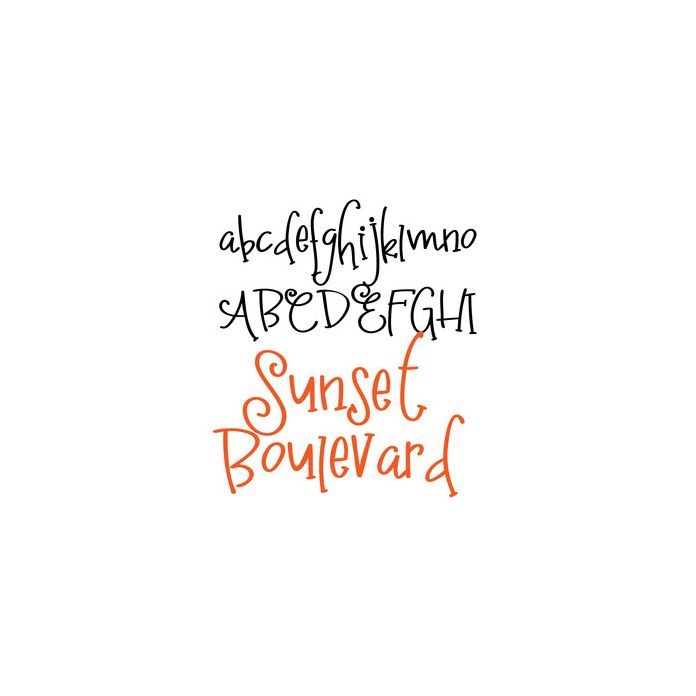 abcdefghijklmno
ABCDEFGHI
Sunset
Boulevard